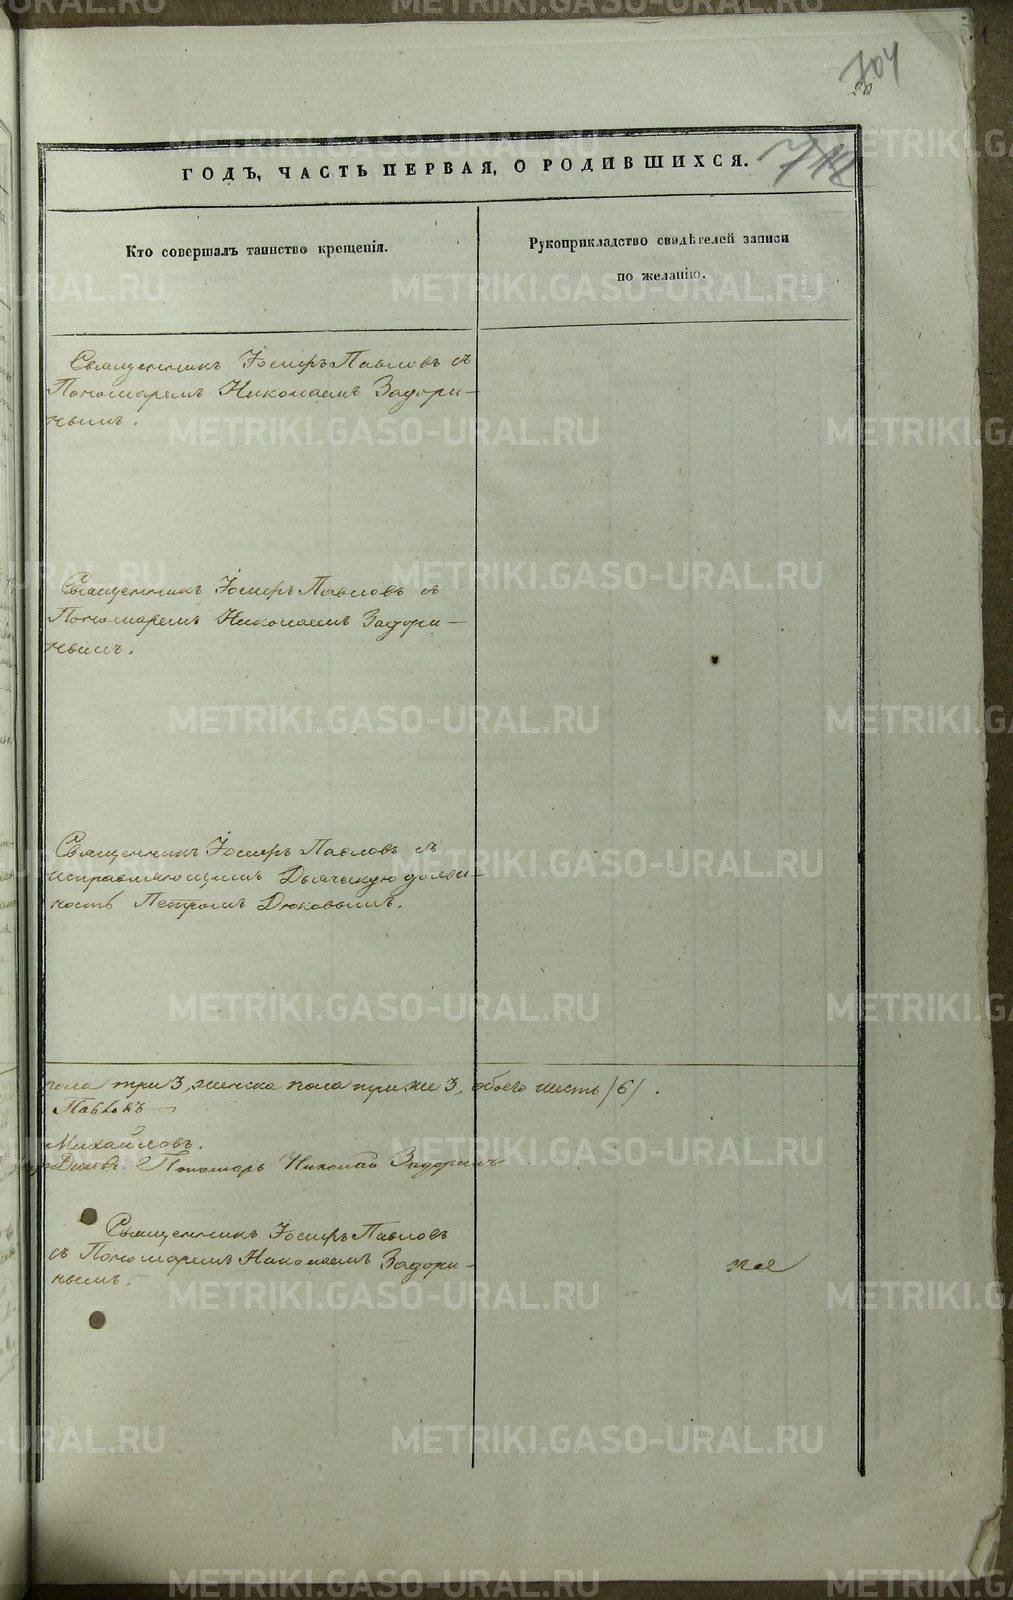 704
ГОДЪ, ЧАСТЬ ПЕРВАЯ, О РОДИВШИХСЯ.
Кто совершалъ таинство крещенія.
Рукоприкладство свидѣтелей записи
по желанію.
Священникъ Іосифъ Павловъ съ
Пономаремъ Николаемъ Задори-
нымъ.
Священникъ Іосифъ Павловъ съ
Пономаремъ Николаемъ Задори-
нымъ.
Священникъ Іосифъ Павловъ съ
исправляющимъ Дьяческую долж-
ность Петромъ Дюковымъ.
пола три 3, женска пола три же 3, обоего шесть /6/.
Павловъ
Михайловъ.
Дюковъ. Пономарь Николай Задоринъ
Священникъ Іосифъ Павловъ
съ Пономаремъ Николаемъ Задори-
нымъ.
METRIKI.GASO-URAL.RU